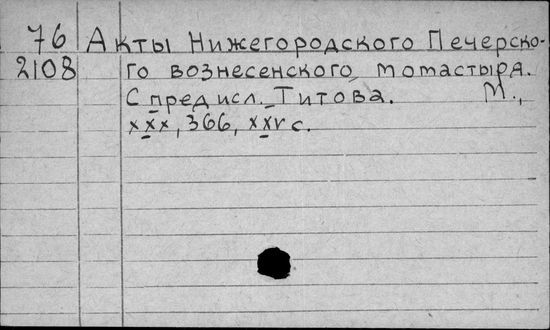 76 Акты Нижегородского Печерско-
2108 го вознесенского мотастыря.
С предисл. Титова. М.,
xxx, 366, xxv с.